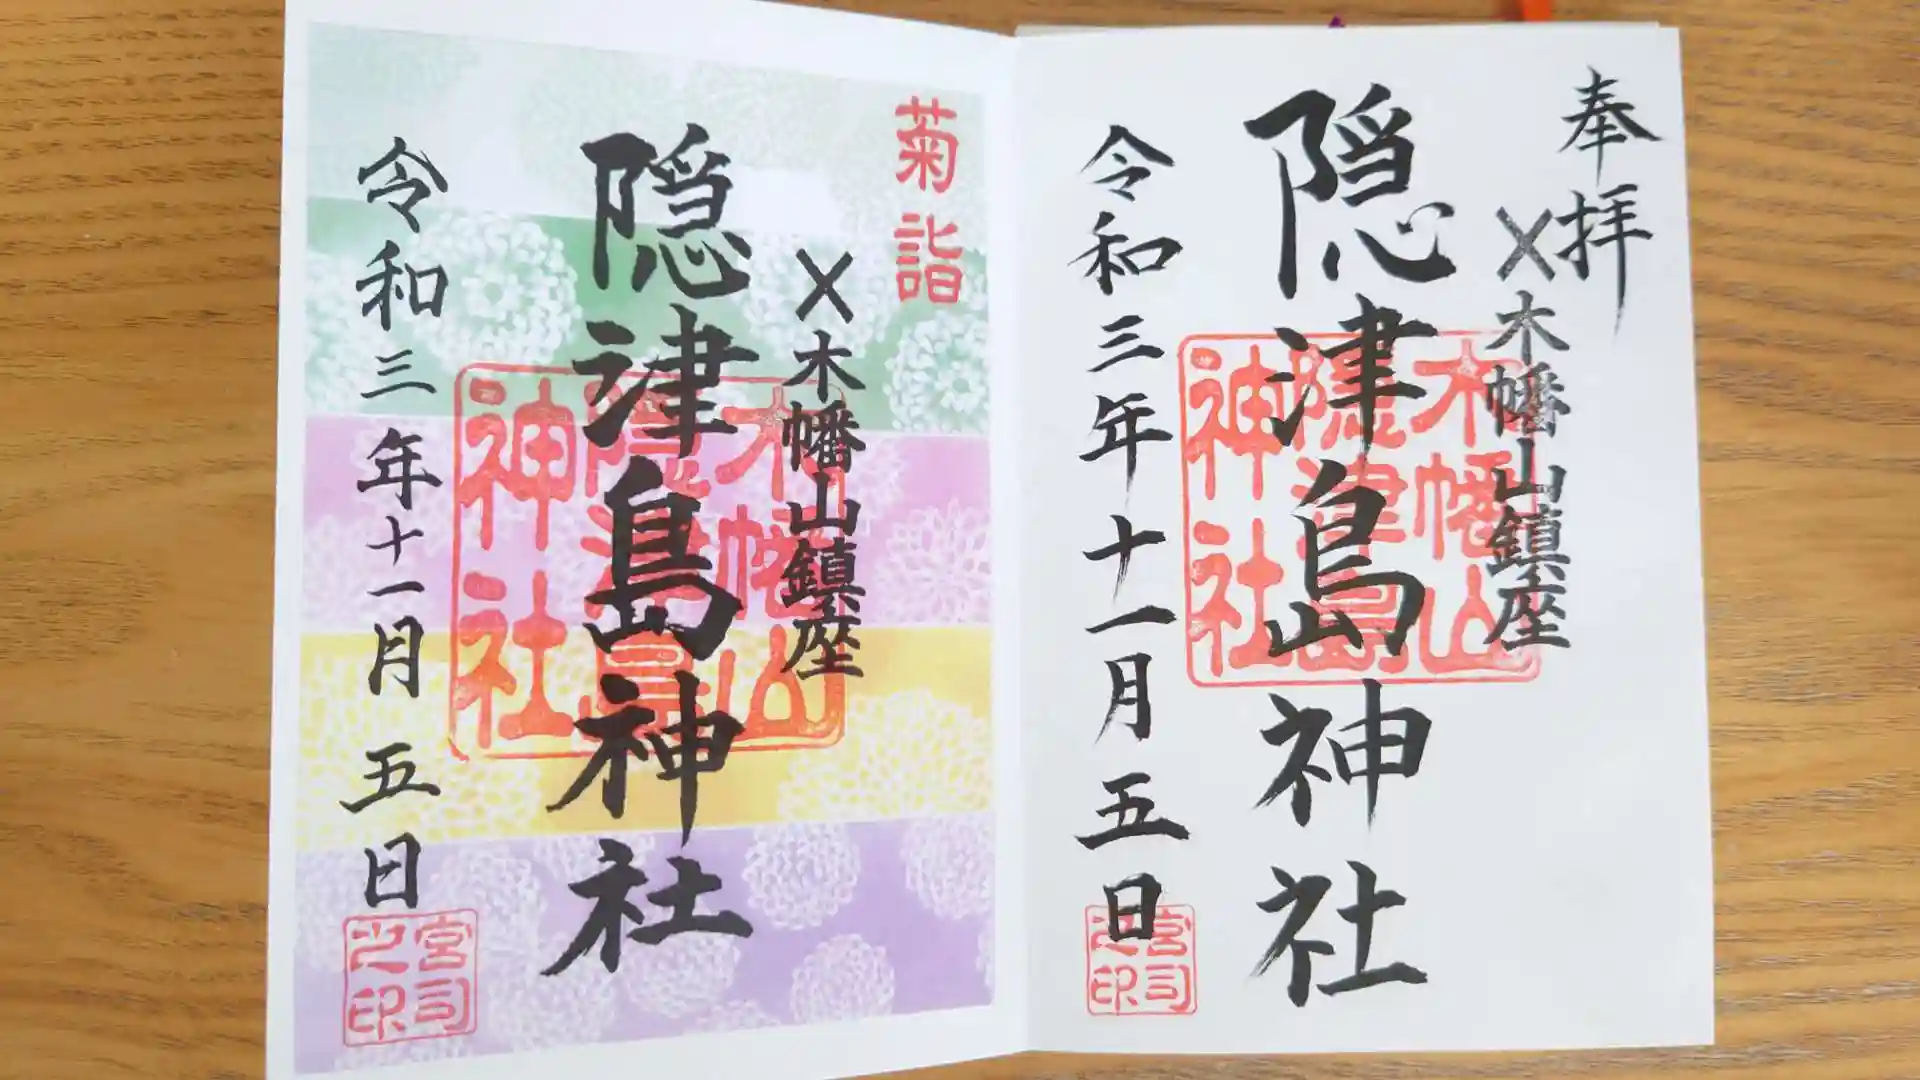 奉拝
〆木幡山鎮座
隠津島神社
令和三年十一月五日
木幡山
隠津島
神社
宮司
之印
菊詣
〆木幡山鎮座
隠津島神社
令和三年十一月五日
木幡山
隠津島
神社
宮司
之印